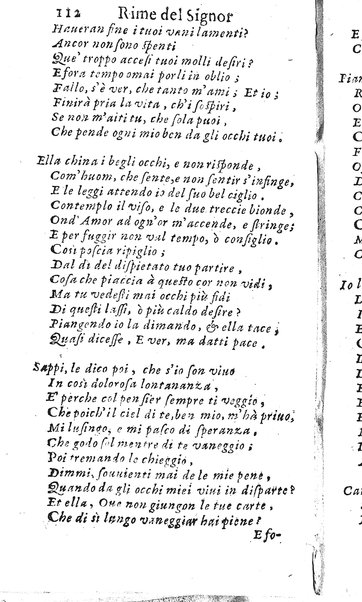 112 Rime del Signor
Haueran fine i tuoi vani lamenti?
Ancor non sono spenti
Que' troppo accesi tuoi molli desiri?
E fora tempo omai porli in oblio;
Fallo, s'è ver, che tanto m'ami; Et io;
Finirà pria la vita, ch'i sospiri,
Se non m'aiti tu, che sola puoi,
Che pende ogni mio ben da gli occhi tuoi.
Ella china i begli occhi, e non risponde,
Com'huom, che sente, e non sentir s'infinge,
E le leggi attendo io del suo bel ciglio.
Contemplo il viso, e le due treccie bionde,
Ond'Amor ad ogn'or m'accende, e stringe;
E per fuggir non val tempo, ò consiglio.
Così poscia ripiglio;
Dal dì del dispietato tuo partire,
Cosa che piaccia à questo cor non vidi,
Ma tu vedesti mai occhi più fidi
Di questi lassi, ò più caldo desire?
Piangendo io la dimando, & ella tace;
Quasi dicesse, E ver, ma datti pace.
Sappi, le dico poi, che s'io son viuo
In così dolorosa lontananza,
E' perche col pensier sempre ti veggio,
Che poich'il ciel di te, ben mio, m'hà priuo,
Mi lusingo, e mi pasco di speranza,
Che godo sol mentre di te vaneggio;
Poi tremando le chieggio,
Dimmi, souuienti mai de le mie pene,
Quando da gli occhi miei viui in disparte?
Et ella, Oue non giungon le tue carte,
Che di sì lungo vaneggiar hai piene?
E fo-